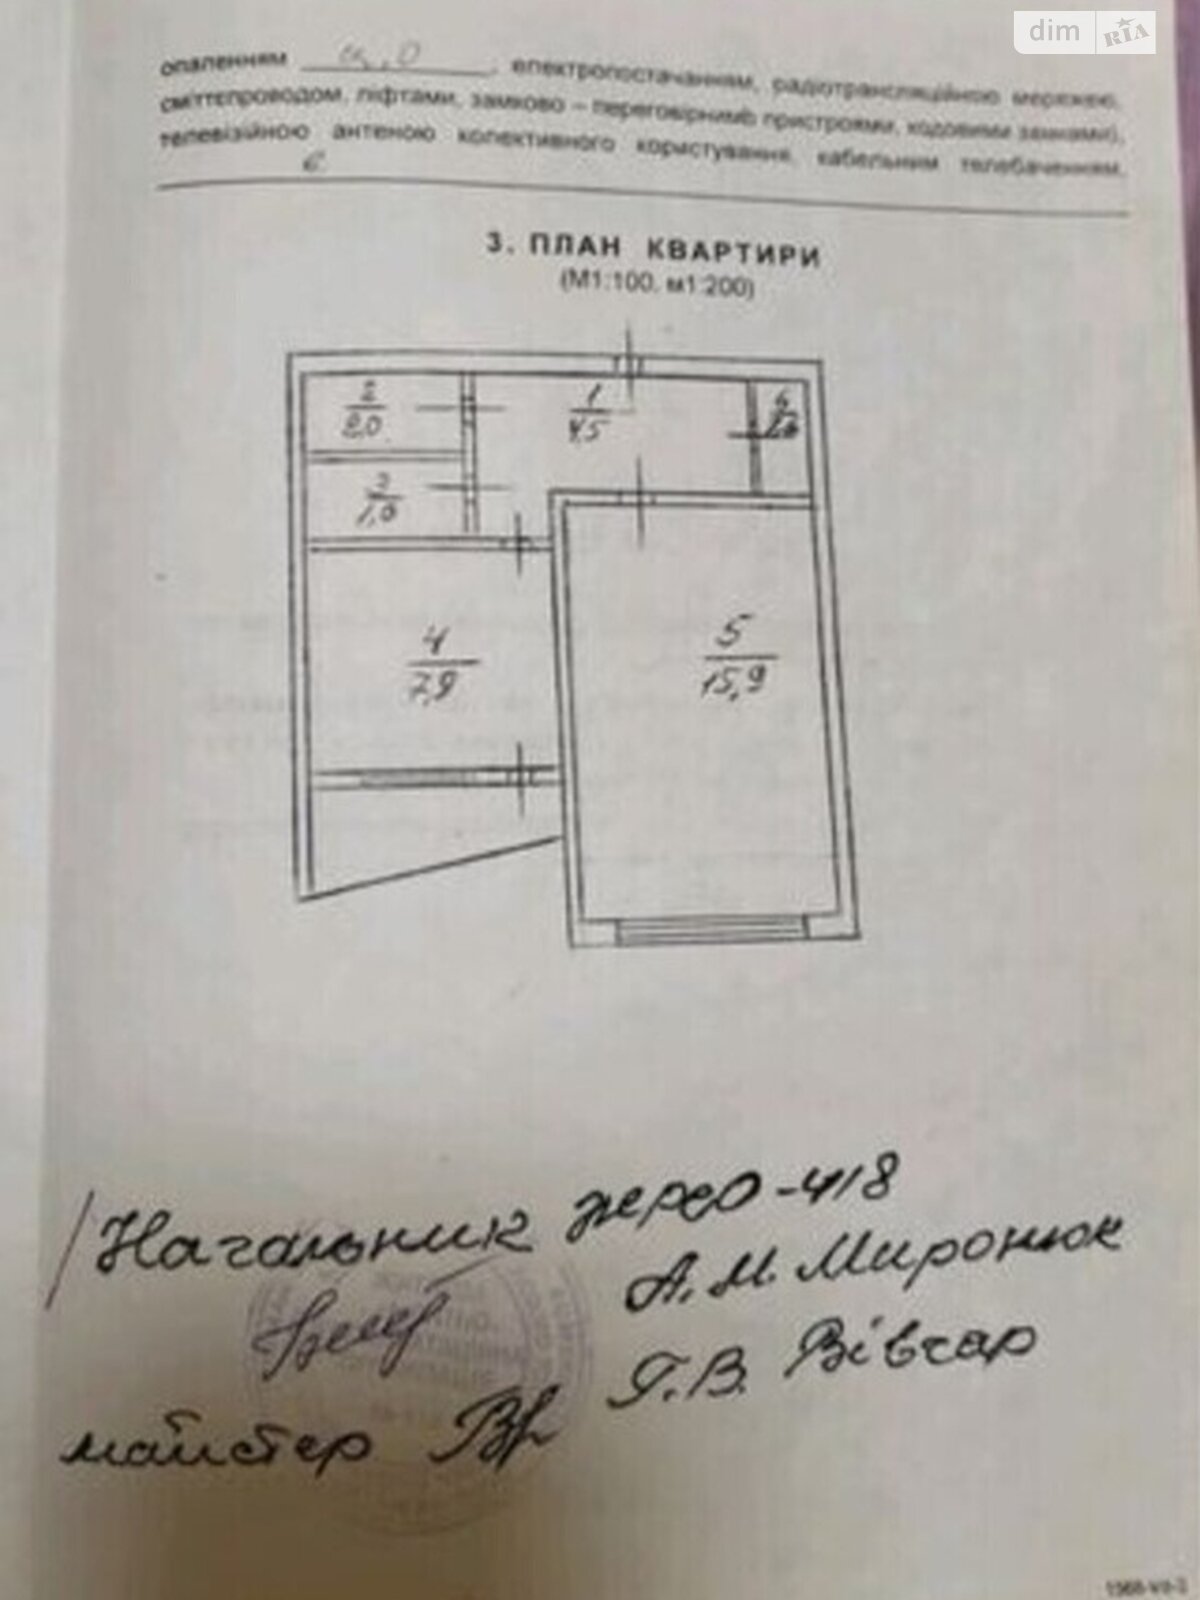 dim RIA
опаленням ц.о, електропостачанням, радіотрансляційною мережею,
сміттєпроводом, ліфтами, замково – переговорними пристроями, кодовими замками),
телевізійною антеною колективного користування, кабельним телебаченням,
є.
3. ПЛАН КВАРТИРИ
(М1:100, м1:200)
2
2,0
1
4,5
6
3
1,0
4
7,9
5
15,9
Начальник жрео-418
А.М. Миронюк
Г.В. Вівчар
майстер